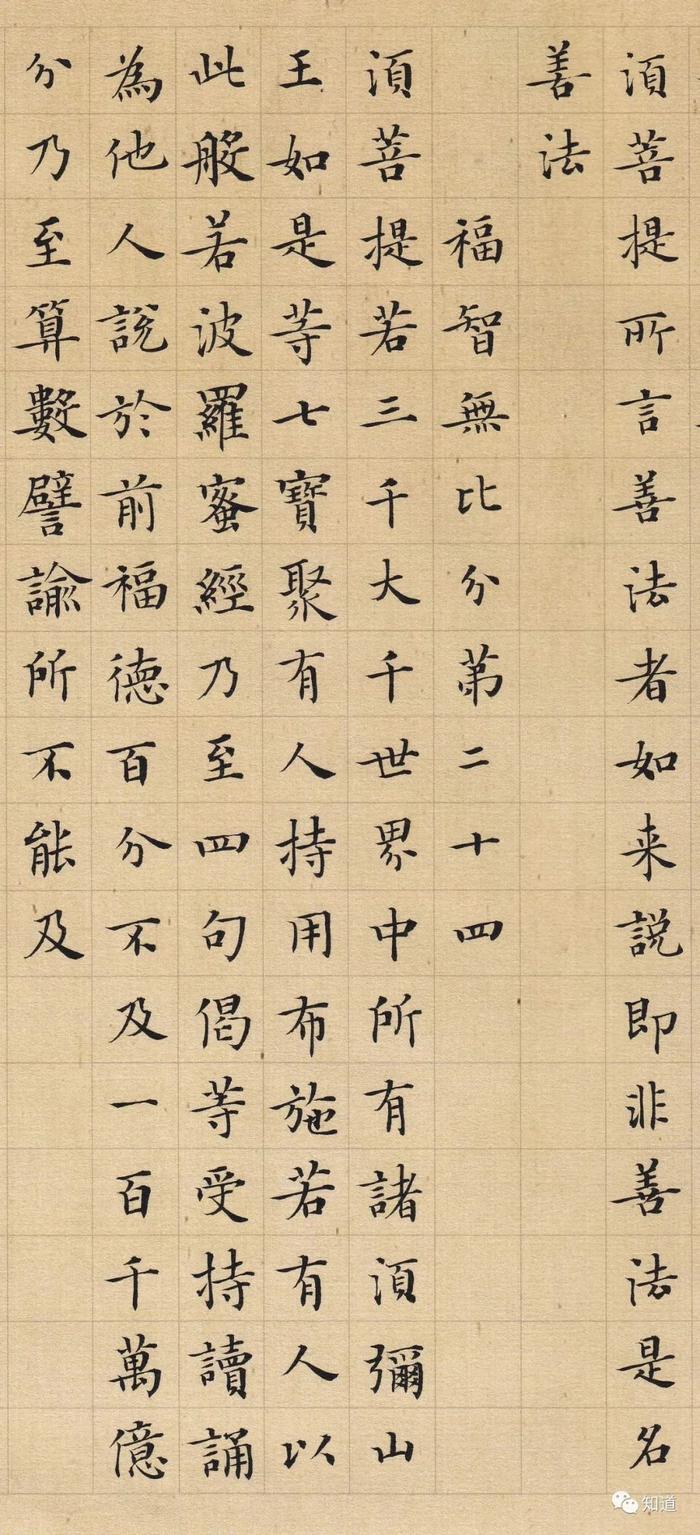 須菩提所言善法者如来說即非善法是名
善法
福智無比分第二十四
須菩提若三千大千世界中所有諸須彌山
王如是等七寶聚有人持用布施若有人以
此般若波羅蜜經乃至四句偈等受持讀誦
為他人說於前福德百分不及一百千萬億
分乃至算數譬諭所不能及
知道